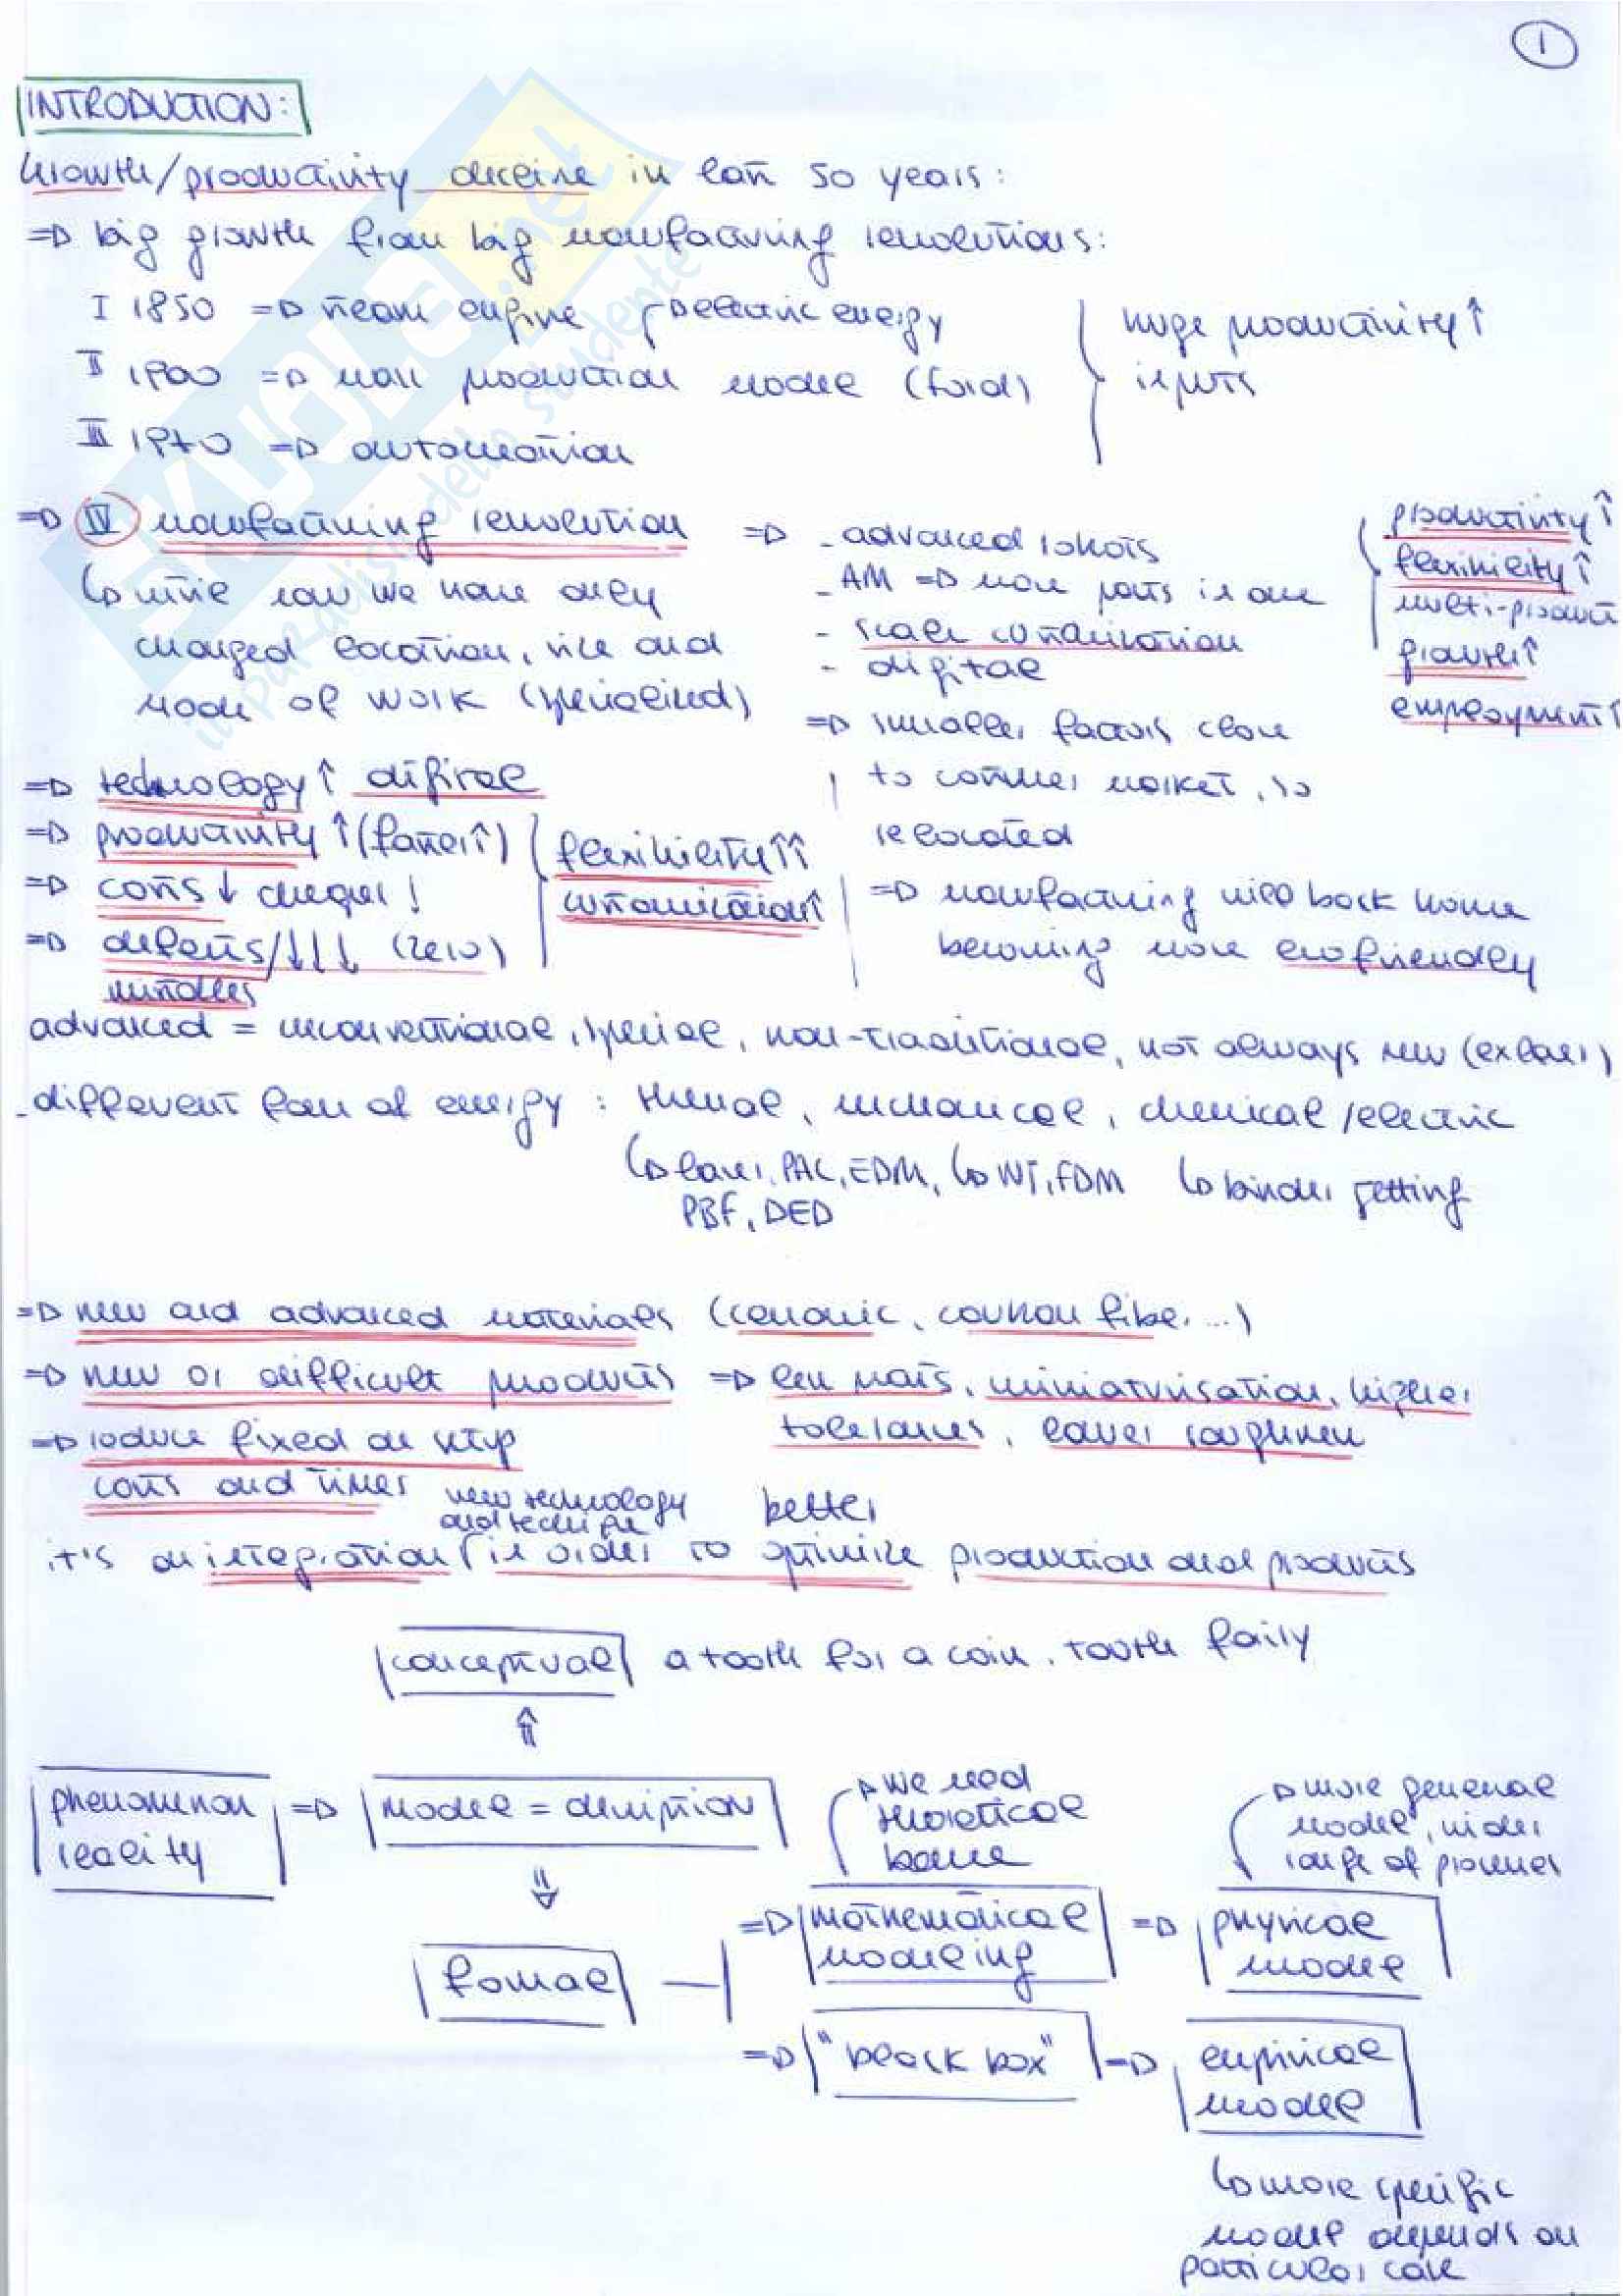 1
INTRODUCTION:
Growth/productivity decline in last 50 years:
=> big growth from big manufacturing revolutions:
I 1850 => steam engine → electric energy
II 1900 => mass production model (Ford)
III 1970 => automation
huge productivity ↑
inputs
=> IV manufacturing revolution
↳ until now we have only
changed location, size and
mode of work (specialized)
=> - advanced robots
- AM => more parts in one
- scale customization
- digital
productivity ↑
flexibility ↑
multi-product
growth ↑
employment ↑
=> smaller factors close
to costumer market, so
relocated
=> manufacturing will back home
becoming more ecofriendly
=> technology ↑ digital
=> productivity ↑ (faster ↑)
=> costs ↓ cheaper!
=> defects/ ↓↓↓ (zero)
flexibility ↑↑
customization ↑
advanced = unconventional, special, non-traditional, not always new (ex laser)
- different form of energy: thermal, mechanical, chemical/electric
↳ laser, PAC, EDM, ↳ WJ, FDM ↳ binder jetting
PBF, DED
=> new and advanced materials (ceramic, carbon fiber...)
=> new or difficult products => less parts, miniaturisation, higher
tolerances, lower roughness
=> reduce fixed or setup
costs and times
new technology
and
better
it's an integration in order to optimize production and products
conceptual a tooth for a coin, tooth fairy
⇑
phenomenon
reality
=> model = description
⇓
formal
→ we need
theoretical
base
=> mathematical
modeling
→ more general
model, wider
range of process
=> physical
model
=> "black box" => empirical
model
↳ more specific
model depends on
particular case
inparadisodellostudente
SKUOLA.net